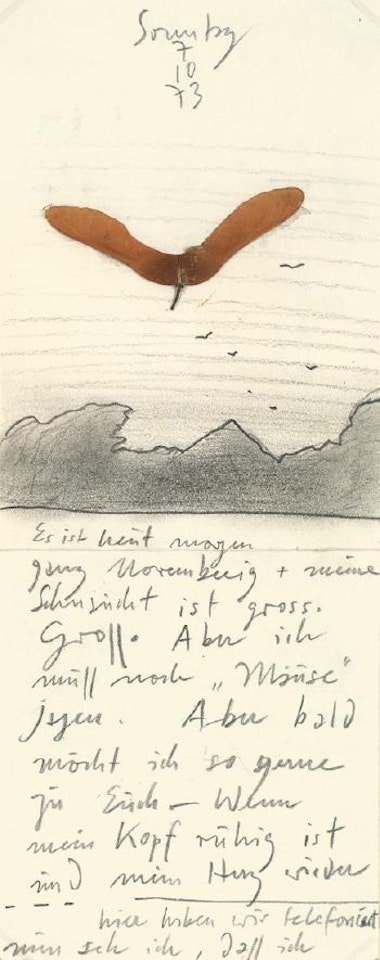 Sonntag
7
10
73
Es ist heut morgen
ganz Novemberig + meine
Sehnsucht ist gross.
Groß. Aber ich
muß noch „Mäuse"
jagen. Aber bald
möcht ich so gerne
zu Euch — Wenn
mein Kopf ruhig ist
und mein Herz wieder
hier haben wir telefoniert
nun seh ich, daß ich